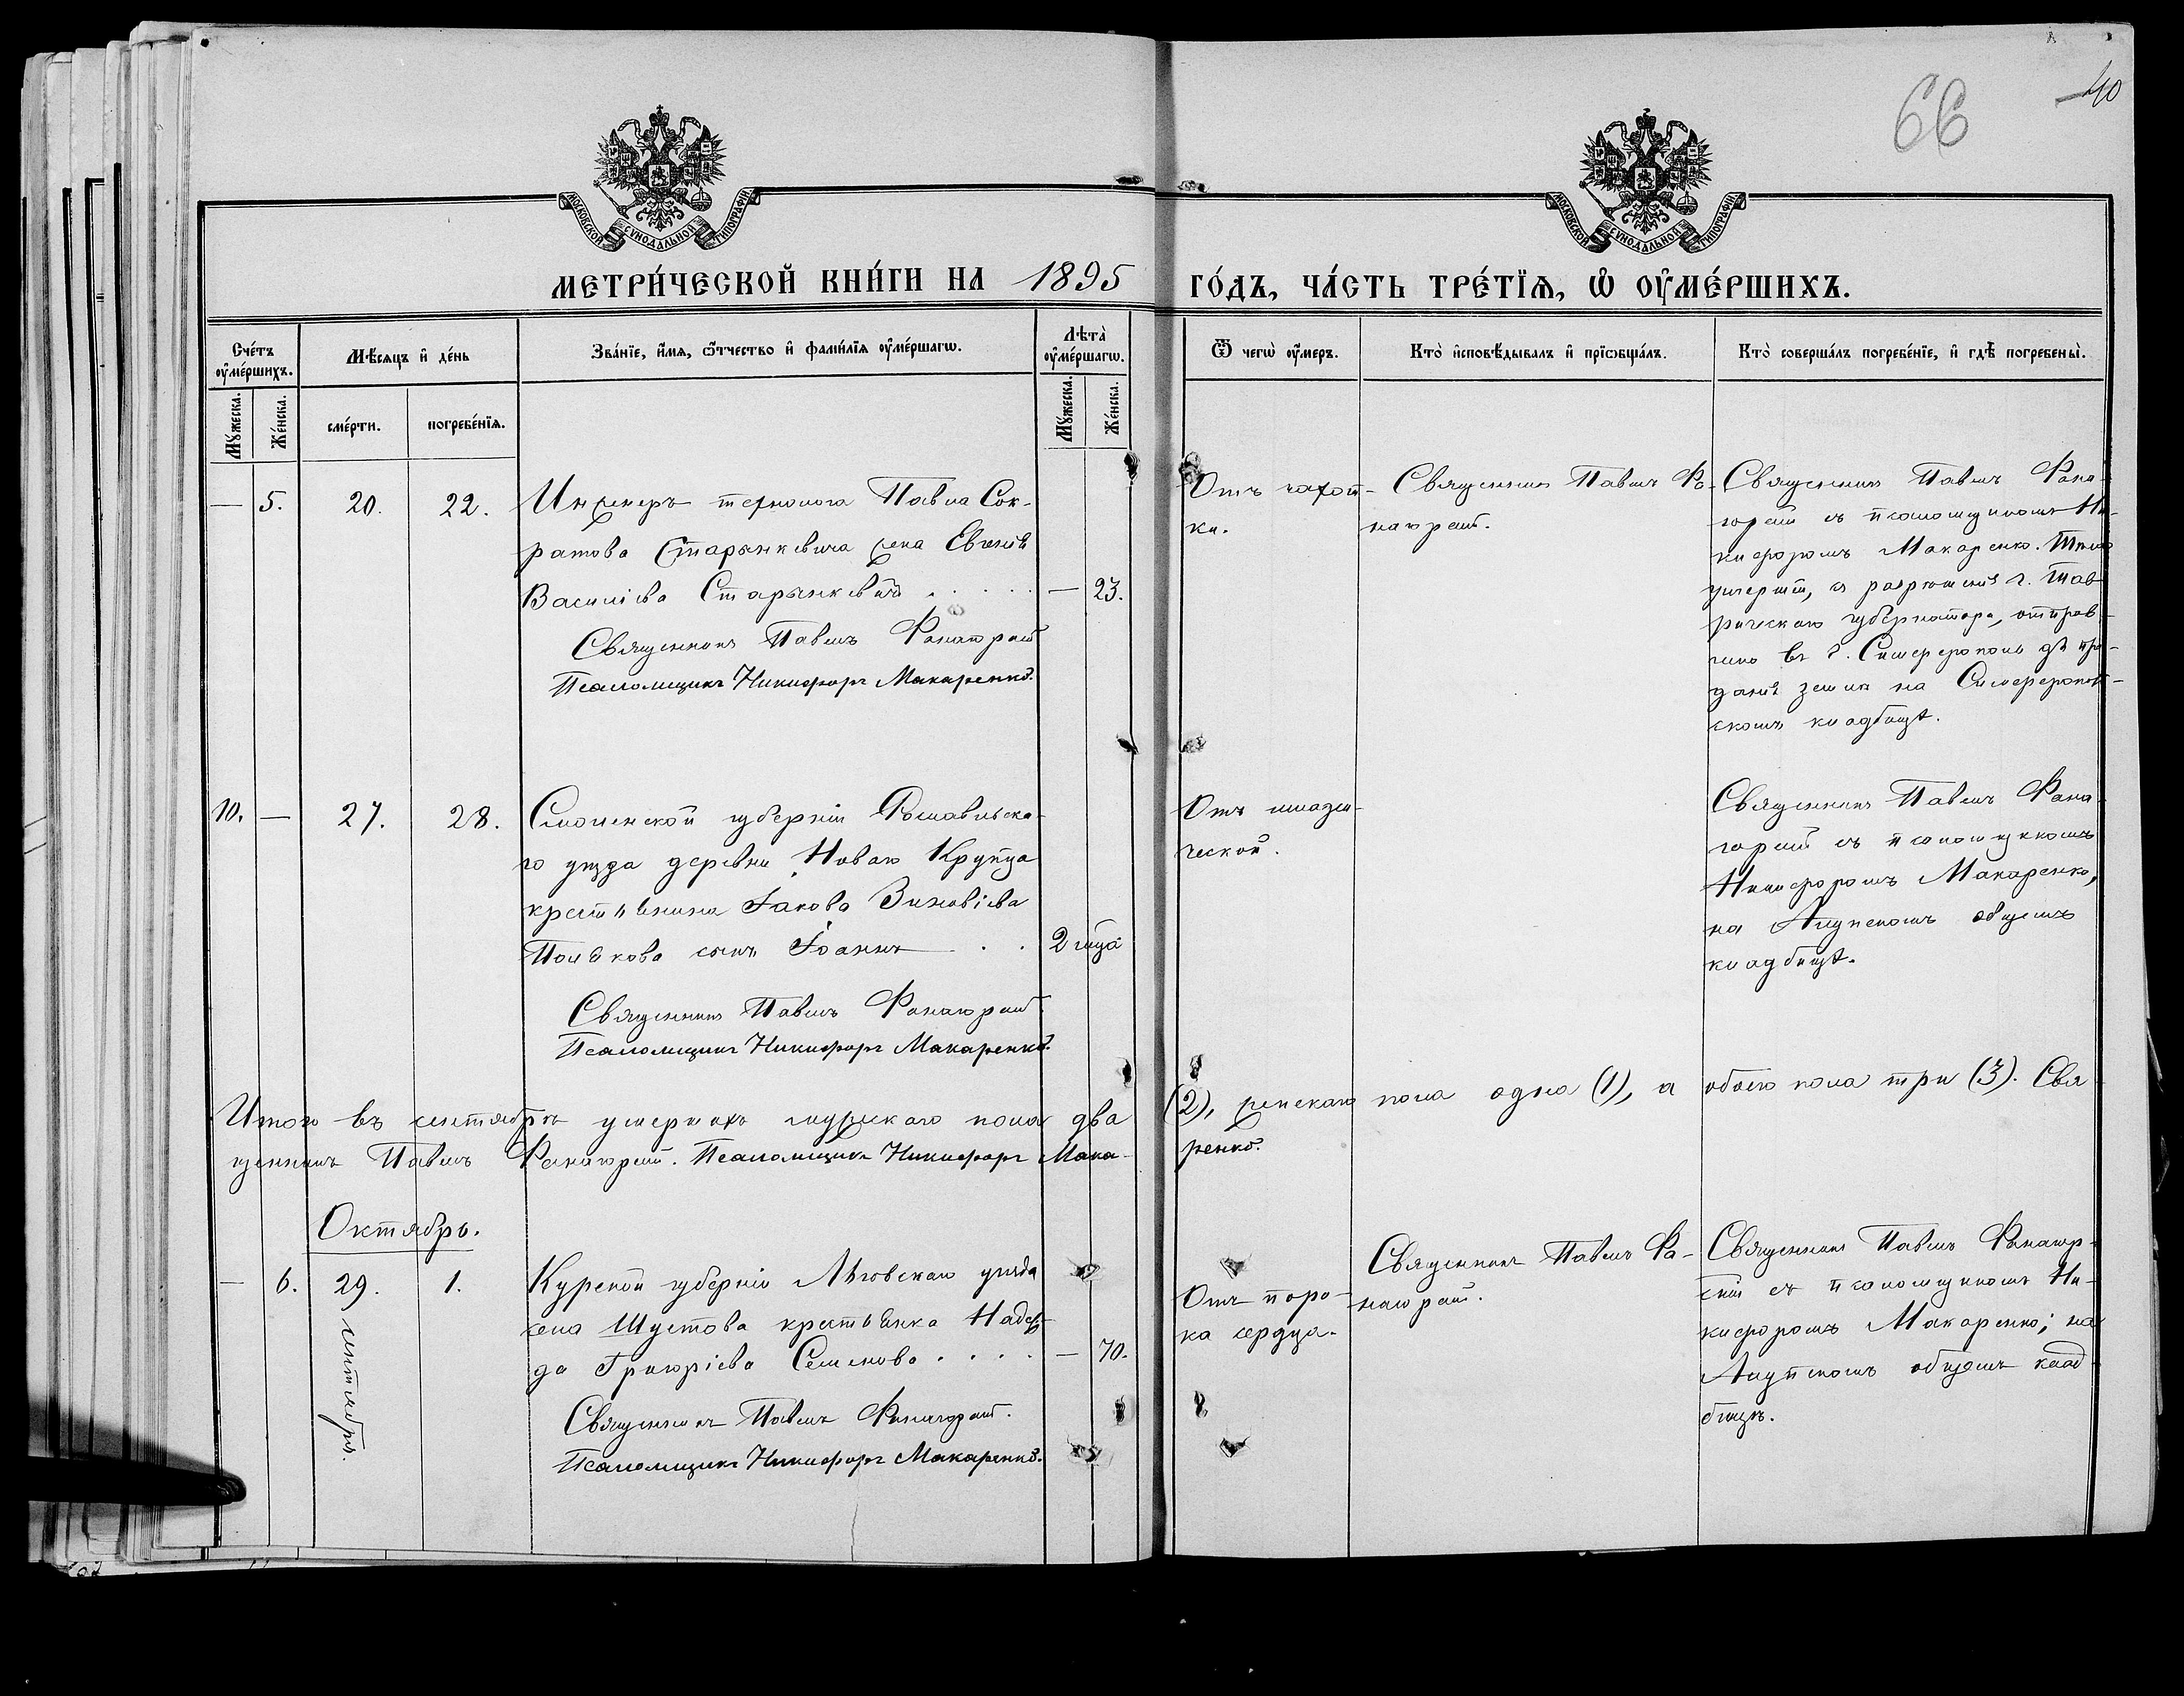 66
40
МОСКОВСКОЙ СѴНОДАЛЬНОЙ ТИПОГРАФІИ
МОСКОВСКОЙ СѴНОДАЛЬНОЙ ТИПОГРАФІИ
МЕТРИ́ЧЕСКОЙ КНИ́ГИ НА 1895 ГО́ДЪ, ЧА́СТЬ ТРЕ́ТІѦ, Ѡ҆ ОУ҆МЕ́РШИХЪ.
Сче́тъ оу҆ме́ршихъ.
Мѣ́сяцъ и҆ де́нь
Зва́нїе, и҆́мя, ѻ҆́тчество и҆ фами́лїя оу҆ме́ршагѡ.
Лѣта̀ оу҆ме́ршагѡ.
Ѿ чегѡ̀ оу҆́меръ.
Кто̀ и҆сповѣ́дывалъ и҆ прїѡбща́лъ.
Кто̀ соверша́лъ погребе́нїе, и҆ гдѣ̀ погребены̀.
Мꙋ́жеска.
Же́нска.
сме́рти.
погребе́нїя.
Мꙋ́жеска.
Же́нска.
— 5. 20. 22.
Инженеръ технолога Павла Сок-
ратова Старынкевича жена Евгенія
Василіева Старынкевичъ . . . . . — 23.
Священникъ Павелъ Фанагорскій
Псаломщикъ Никифоръ Макаренко.
Отъ чахот-
ки.
Священникъ Павелъ Фа-
нагорскій.
Священникъ Павелъ Фана-
горскій съ псаломщикомъ Ни-
кифоромъ Макаренко. Тѣло
умершей, съ разрѣшенія г. Тав-
рическаго губернатора, отправ-
лено въ г. Симферополь дѣ пре-
дана землѣ на Симферополь-
скомъ кладбищѣ.
10. — 27. 28.
Смоленской губерніи Рославльска-
го уѣзда деревни Новаго Крупца
крестьянина Іакова Зиновіева
Полякова сынъ Іоаннъ . . 2 мѣца
Священникъ Павелъ Фанагорскій.
Псаломщикъ Никифоръ Макаренко.
Отъ младен-
ческой.
Священникъ Павелъ Фана-
горскій съ псаломщикомъ
Никифоромъ Макаренко,
на Алупскомъ общемъ
кладбищѣ.
Итого въ сентябрѣ умершихъ мужскаго пола два (2), женскаго пола одна (1), а обоего пола три (3). Свя-
щенникъ Павелъ Фанагорскій. Псаломщикъ Никифоръ Макаренко.
Октябрь.
— 6. 29. сентября. 1.
Курской губерніи Льговскаго уѣзда
села Шустова крестьянка Надеж-
да Григоріева Семенова . . . . — 70.
Священникъ Павелъ Фанагорскій.
Псаломщикъ Никифоръ Макаренко.
Отъ поро-
ка сердца.
Священникъ Павелъ Фа-
нагорскій.
Священникъ Павелъ Фанагор-
скій съ псаломщикомъ Ни-
кифоромъ Макаренко; на
Алупскомъ общемъ клад-
бищѣ.